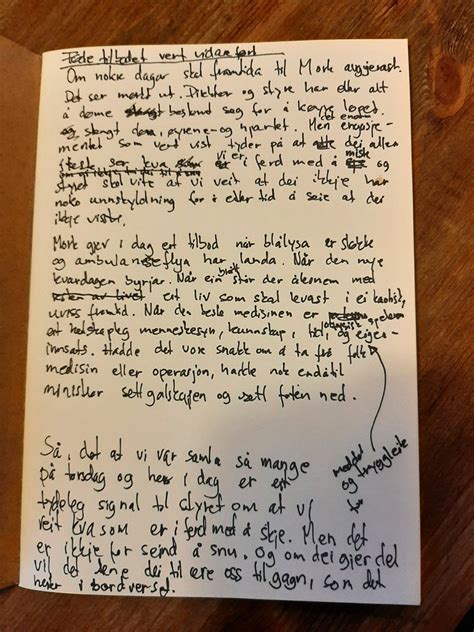 tilbodet vert vidareført
Om nokre dagar skal framtida til Mork avgjerast.
Det ser mørkt ut. Direktør og styre har eller alt
å døme bestemt seg for å køyre løpet.
og stengt døra, øyrene og hjartet. Men engasje-
mentet som vert vist tyder på at dei aller
ser kva vi er i ferd med å miste og
styret skal vite at vi veit at dei ikkje har
noko unnskyldning for i ettertid å seie at dei
ikkje visste.
Mork gjev i dag eit tilbod når blålysa er slokte
og ambulanseflya har landa. Når den nye
kvardagen byrjar. Når ein brått står der åleine med
eit liv som skal levast i ei kaotisk,
uviss framtid. Når den beste medisinen er
eit heilskapleg menneskesyn, kunnskap, tid, og eigen-
innsats. Hadde det vore snakk om å ta frå folk
medisin eller operasjon, hadde nok endåtil
ministrar sett galskapen og sett foten ned.
og tryggleik
Så, det at vi var samla så mange
på torsdag og her i dag er eit
tydeleg signal til styret om at vi
veit kva som er i ferd med å skje. Men det
er ikkje for seint å snu. Og om dei gjer det
vil det tene dei til ære oss til gagn, som det
heiter i bordverset.